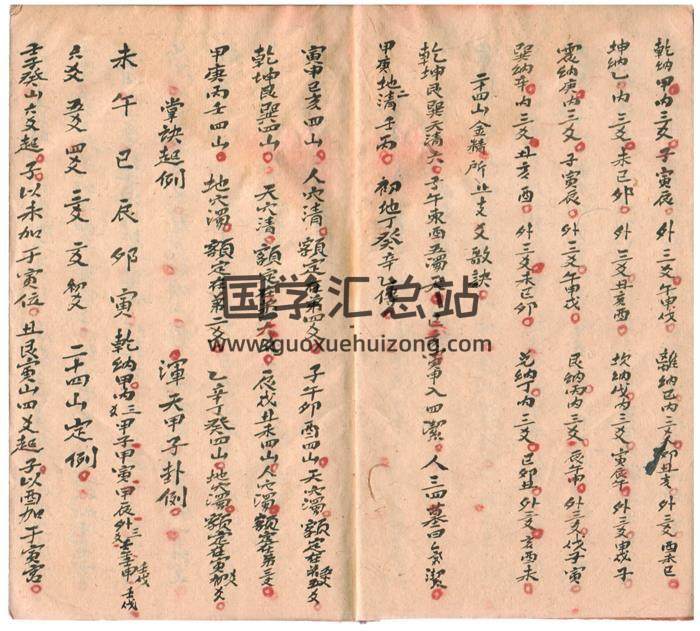 乾納甲內三爻子寅辰 外三爻午申戌 離納己內三爻卯丑亥 外三爻酉未巳
坤納乙內三爻未巳卯 外三爻丑亥酉 坎納戊內三爻寅辰午 外三爻申戌子
震納庚內三爻子寅辰 外三爻午申戌 艮納丙內三爻辰午申 外三爻戌子寅
巽納辛內三爻丑亥酉 外三爻未巳卯 兌納丁內三爻巳卯丑 外三爻亥酉未
二十四山金精所止支爻歌訣
乾坤艮巽天清六 子午東酉五濁天 巳亥寅申人四潔 人三四墓
甲庚地二清壬丙 初地丁癸辛乙
寅申巳亥四山 人穴清 額定在第四爻 子午卯酉四山 天穴濁 額定在第五爻
乾坤艮巽四山 天穴清 額定在第六爻 辰戌丑未四山 人穴濁 額定在第三爻
甲庚丙壬四山 地穴濁 額定在第二爻 乙辛丁癸四山 地穴濁 額定在初爻
掌訣起例 渾天甲子卦例
未午巳辰卯寅 乾納甲內三爻甲子甲寅甲辰外三爻壬午壬申壬戌
六爻 五爻 四爻 三爻 二爻 初爻 二十四山定例
壬子癸山六爻起 子以未加于寅位 丑艮寅山四爻起 子以酉加于寅宮
国学汇总站
www.guoxuehuizong.com